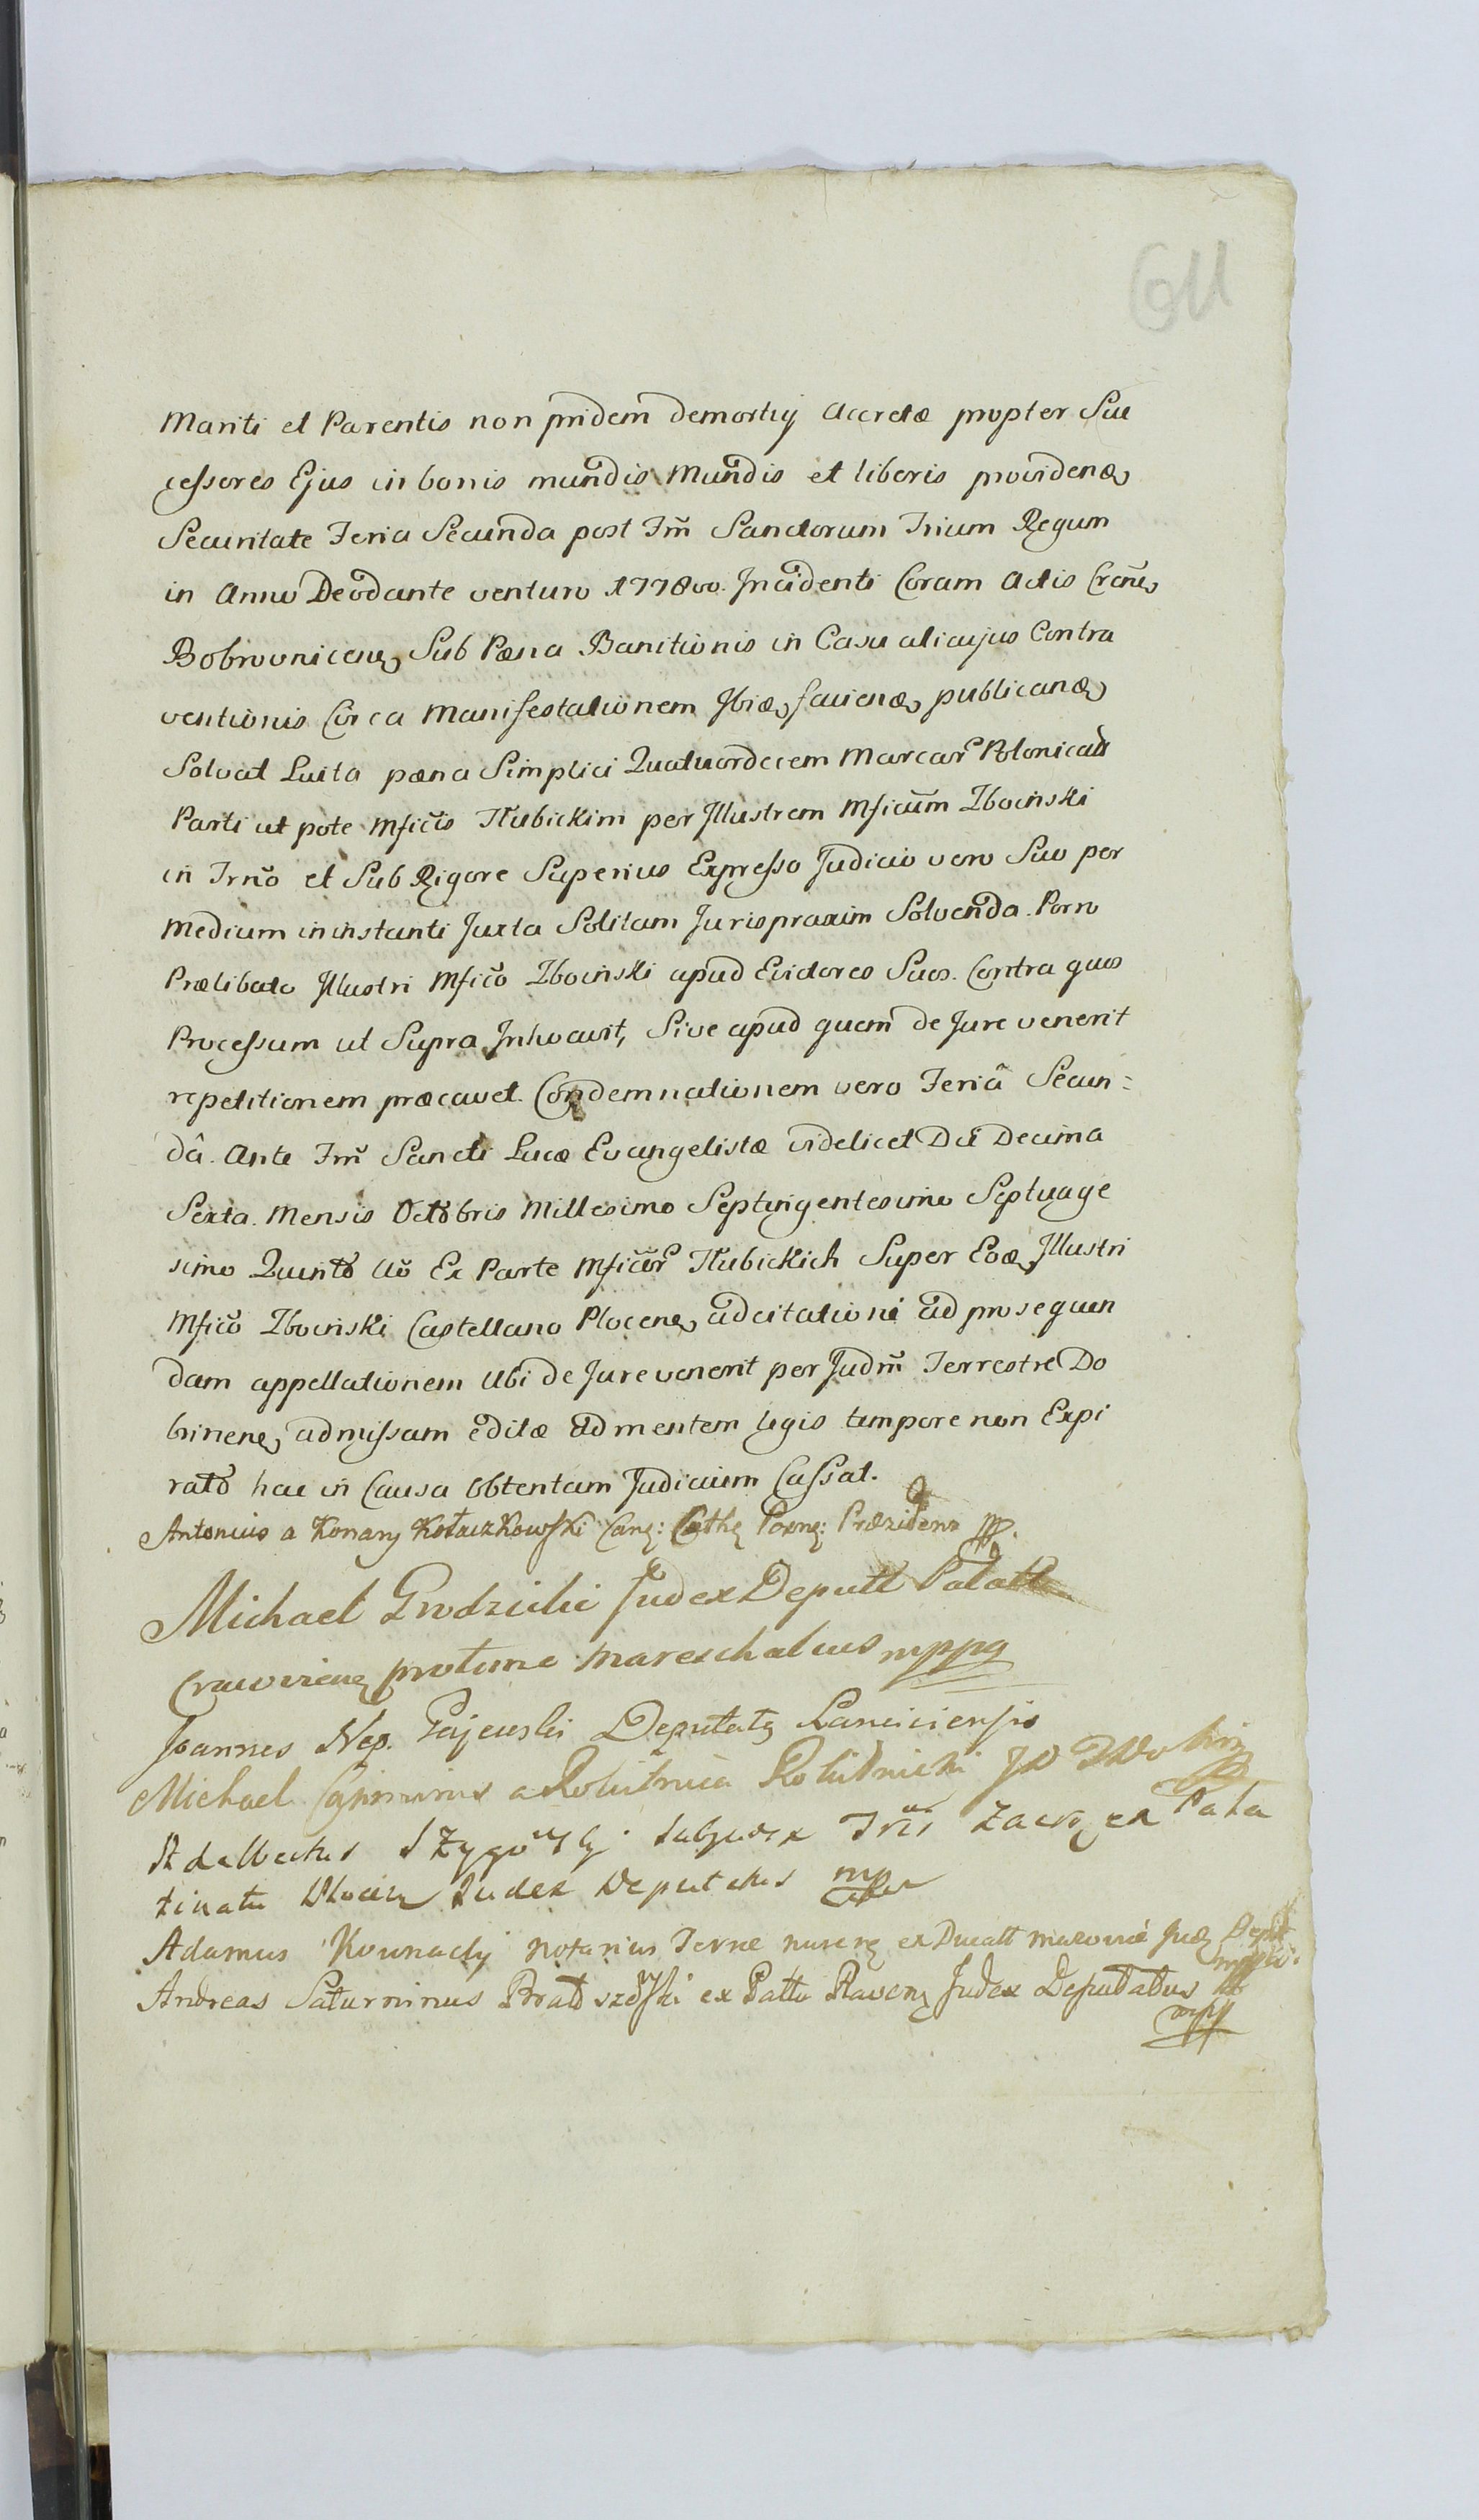 611
Mariti et Parentis non pridem demortuj accretæ propter Suc
cessores Ejus in bonis mundis Mundis et liberis providenæ
Securitate Feria Secunda post Fm̃ Sanctorum Trium Regum
in Anno Deo dante venturo 1778vo. Incidenti Coram Actis Crãne
Bobrovnicene, Sub Pæna Banitionis in Casu alicujus Contra
ventionis Circa Manifestationem Ibiæ, faciendæ, publicanæ
Solvat Luita pæna Simplici Quatuordecem Marcar̃ Polonical
Parti ut pote Mficis Hubickim per Illustrem Mficũm Zboiński
in Trno et Sub Rigore Superius Expresso Judicio vero Suo per
Medium in instanti Juxta Solitam Juris praxim Solvenda. Porro
Prælibato Illustri Mficõ Zboiński apud Evictores Suos. Contra quos
Processum ut Supra Inhovavit, Sive apud quem de Jure venerit
repetitionem præcavet. Condemnationem vero Feriâ Secun=
dâ. Ante Fm̃ Sancti Lucæ Evangelistæ videlicet Die Decima
Sexta. Mensis Octobris Millesimo Septingentesimo Septuage
simo Quinto Aõ Ex Parte Mficõr Hubickich Super Eoæ, Illustri
Mficõ Zboiński Castellano Plocene, ad citationi ad prosequen
dam appellationem Ubi de Jure venerit per Judm̃ Terrestre Do
brinene, admissam editæ ad mentem legis tempore non Expi
rato hac in Causa Obtentam Judicium Cassat.
Antonius a Konary Kołaczkowski Cang: Cathę Posnę: Præzidens mp.
Michael Grodzicki Judex Deputt Palatt
Cracovienę protunc Mareschalcus mppa
Joannes Nep. Gajewski Deputatg Lanciciensis
Michael Casimirus a Rohitnica
Adalbertus subjudex Trĩs Zacrõ ex Pala
tinatu Plocen Judex Deputatus mp
Adamus Kownacky notarius Terrae nurenę ex Ducatt Mazoviæ Jud
Andreas Saturninus ex Pattu Ravenę Judex Deputatus
mpp